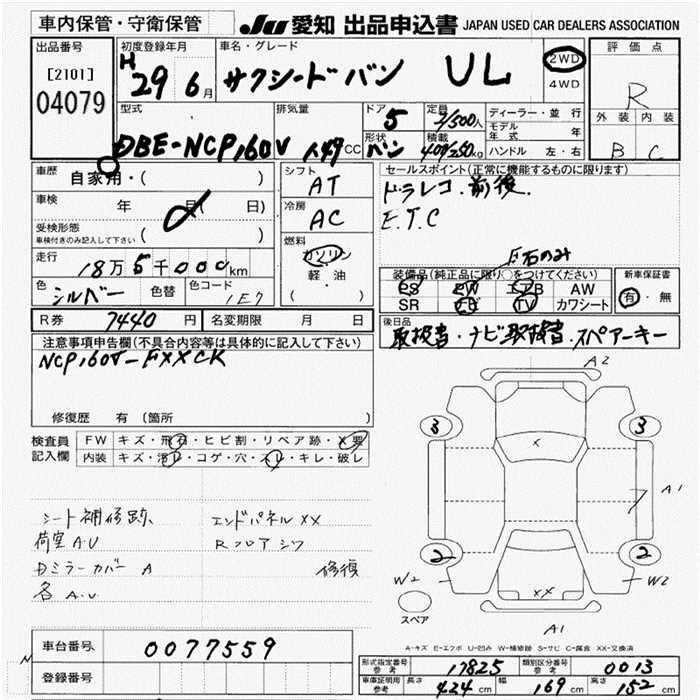 車内保管・守衛保管
JU 愛知 出品申込書 JAPAN USED CAR DEALERS ASSOCIATION
出品番号
[2101]
04079
初度登録年月
H 29 6月
車名・グレード
サクシードバン UL
2WD
4WD
評価点
R
外装 内装
B C
型式
DBE-NCP160V
排気量
1.49 CC
ドア 5
形状 バン
定員 2/5(00)人
積載 400/250kg
ディーラー・並行
モデル年式 年
ハンドル 左・右
車歴
自家用・( )
車検 年 月( 日)
受検形態
車検付きのみ記入して下さい ( )
走行
18万5千000km
色 シルバー 色替 色コード 1E7
シフト AT
冷房 AC
燃料
ガソリン
軽・油
( )
セールスポイント(正常に機能するものに限ります)
ドラレコ.前後.
E.T.C
装備品(純正品に限り○をつけてください)
PS PW エアB AW
SR ナビ TV カワシート
新車保証書
有・無
R券 7440円 名変期限 月 日
後日品
取扱書・ナビ取扱書.スペアーキー
注意事項申告欄(不具合内容等は具体的に記入して下さい)
NCP160V-EXXCK
修復歴 有(箇所 )
検査員記入欄
FW キズ・飛石・ヒビ割・リペア跡・X要
内装 キズ・汚レ・コゲ・穴・スレ・キレ・破レ
シート補修跡 エンドパネルXX
荷室A.U Rフロアシワ
Dミラーカバー A 修復
各A.U
A2
3 3
A1
2 2
W2 W2
X
XX
スペア
A1
A-キズ E-エクボ U-凹み W-補修跡 S-サビ C-腐食 XX-交換済
車台番号 0077559
登録番号
形式指定番号 参考 17825 類別区分番号 参考 0013
車庫証明用 参考 長さ 424cm 幅 169cm 高さ 152cm